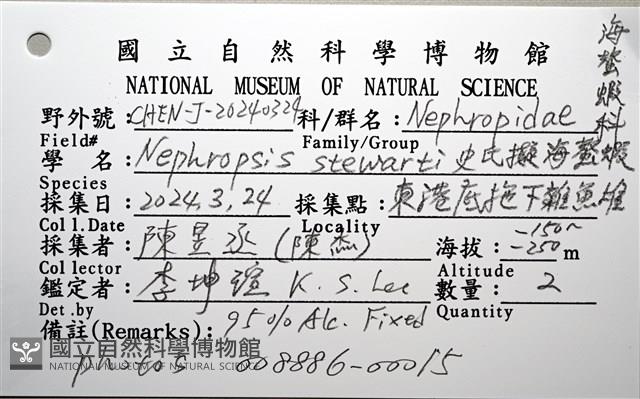 國立自然科學博物館
NATIONAL MUSEUM OF NATURAL SCIENCE
海螯蝦科
野外號:CHEN-J-20240324 科/群名:Nephropidae
Field# Family/Group
學 名:Nephropsis stewarti 史氏擬海螯蝦
Species
採集日:2024,3,24 採集點:東港底拖下雜魚堆
Col l.Date Locality
採集者:陳昱丞(陳杰) 海拔:-150~-250m
Col lector Altitude
鑑定者:李坤瑄 K. S. Lee 數量:2
Det .by Quantity
備註(Remarks):95% Alc. Fixed
photos 008886-00015
國立自然科學博物館
NATIONAL MUSEUM OF NATURAL SCIENCE